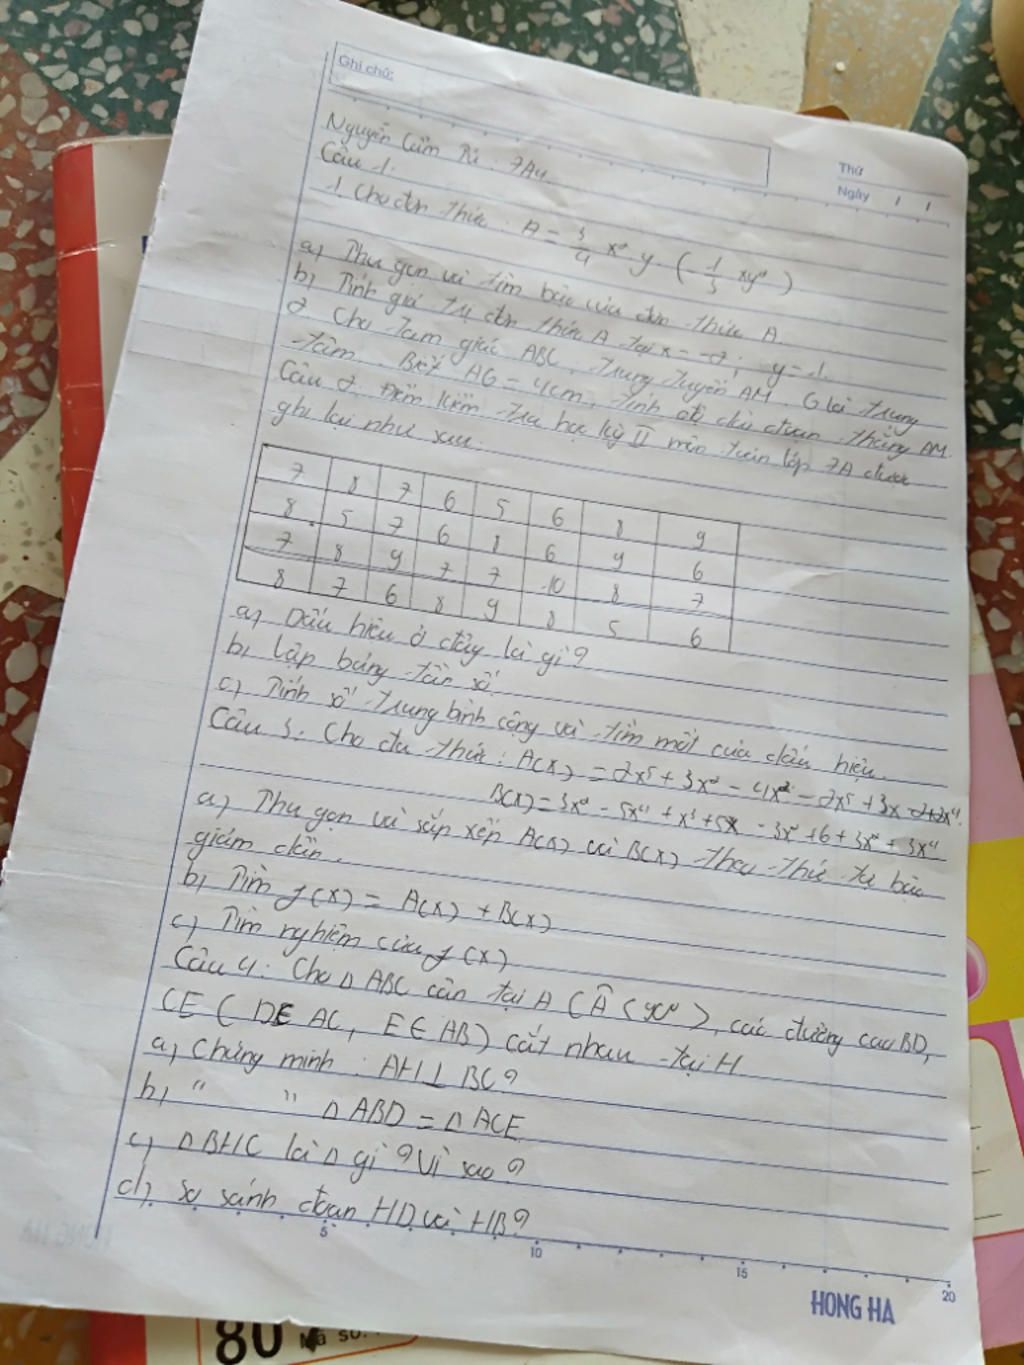 Ghi chú:
Thứ
Ngày / /
Nguyễn Cẩm Tú. 7A4
Câu 1.
1. Cho đơn thức. A = 3/4 x² y. (-1/3 xy²)
a, Thu gọn và tìm bậc của đơn thức A.
b, Tính giá trị đơn thức A tại x = -2; y = 1.
2 Cho tam giác ABC, trung tuyến AM. G là trung
tâm. Biết AG = 4cm, tính độ dài đoạn thẳng AM.
Câu 2. Điểm kiểm tra học kỳ II môn toán lớp 7A được
ghi lại như sau.
7 8 7 6 5 6 8 9
8 5 7 6 8 6 9 6
7 8 9 7 7 10 8 7
8 7 6 8 9 8 5 6
a, Dấu hiệu ở đây là gì?
b, Lập bảng tần số.
c, Tính số trung bình cộng và tìm mốt của dấu hiệu.
Câu 3. Cho đa thức: A(x) = 2x⁵ + 3x² - 4x² - 2x⁵ + 3x
B(x) = 3x² - 5x⁴ + x³ + 5x - 3x² + 6 + 3x² + 3x⁴
a, Thu gọn và sắp xếp A(x) và B(x) theo thứ tự bậc
giảm dần.
b, Tìm f(x) = A(x) + B(x)
c, Tìm nghiệm của f(x)
Câu 4. Cho Δ ABC cân tại A (Â < 90⁰), các đường cao BD,
CE (D∈ AC, E∈ AB) cắt nhau tại H
a, Chứng minh: AH⊥ BC?
b, " " Δ ABD = Δ ACE
c, Δ BHC là Δ gì? Vì sao?
d, So sánh đoạn HD và HB?
5 10 15 20
HONG HA
HONG HA
80
Mã số: